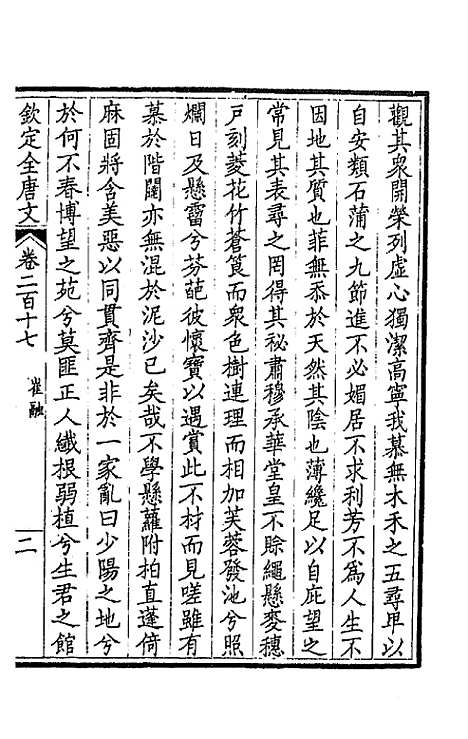 觀其衆開榮列虛心獨潔高寧我慕無木禾之五尋卑以
自安類石蒲之九節進不必媚居不求利芳不爲人生不
因地其質也菲無忝於天然其陰也薄纔足以自庇望之
常見其表尋之罔得其祕肅穆承華堂皇不賒繩懸麥穗
戸刻菱花竹蒼筤而衆色樹連理而相加芙蓉發池兮照
爛日及懸霤兮芬葩彼懷寶以遇賞此不材而見嗟雖有
慕於階闥亦無混於泥沙已矣哉不學懸蘿附柏直蓬倚
麻固將含美惡以同貫齊是非於一家亂曰少陽之地兮
於何不春博望之苑兮莫匪正人纎根弱植兮生君之館
欽定全唐文
卷二百十七
崔融
二